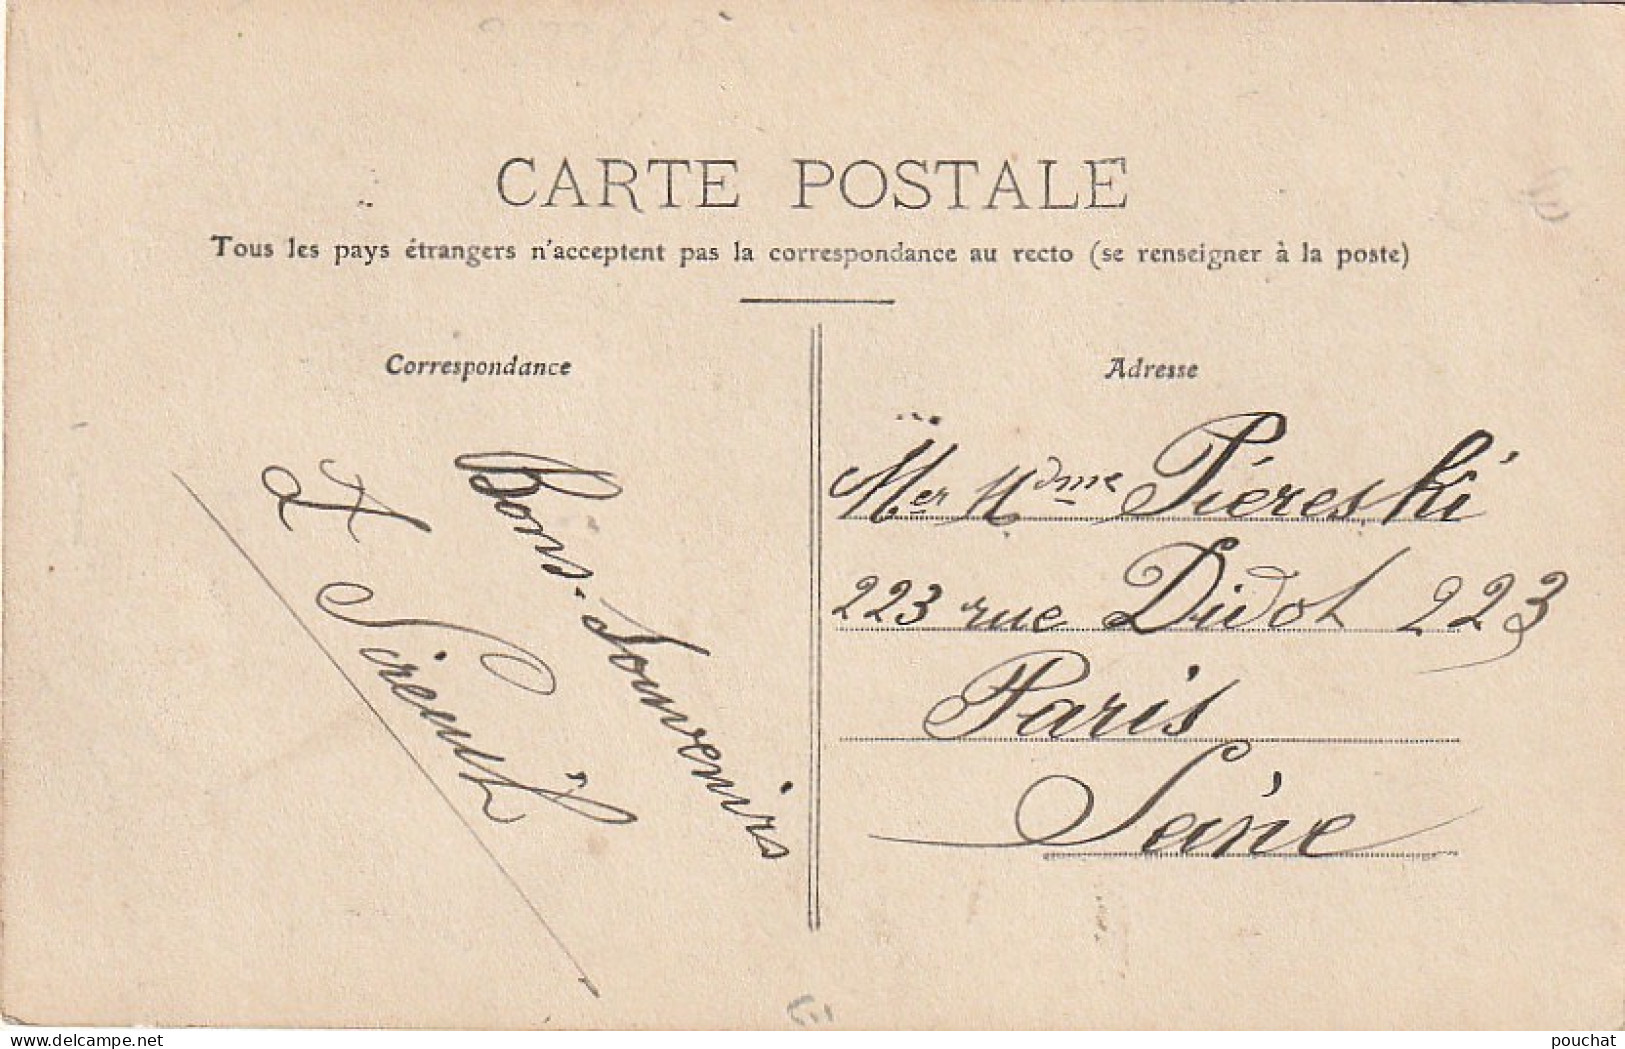 CARTE POSTALE
Tous les pays étrangers n'acceptent pas la correspondance au recto (se renseigner à la poste)
Correspondance
Bons-Souvenirs
Adresse
Mer Mdme Piéreski
223 rue Didot 223
Paris
Seine
delcampe.net
pouchat